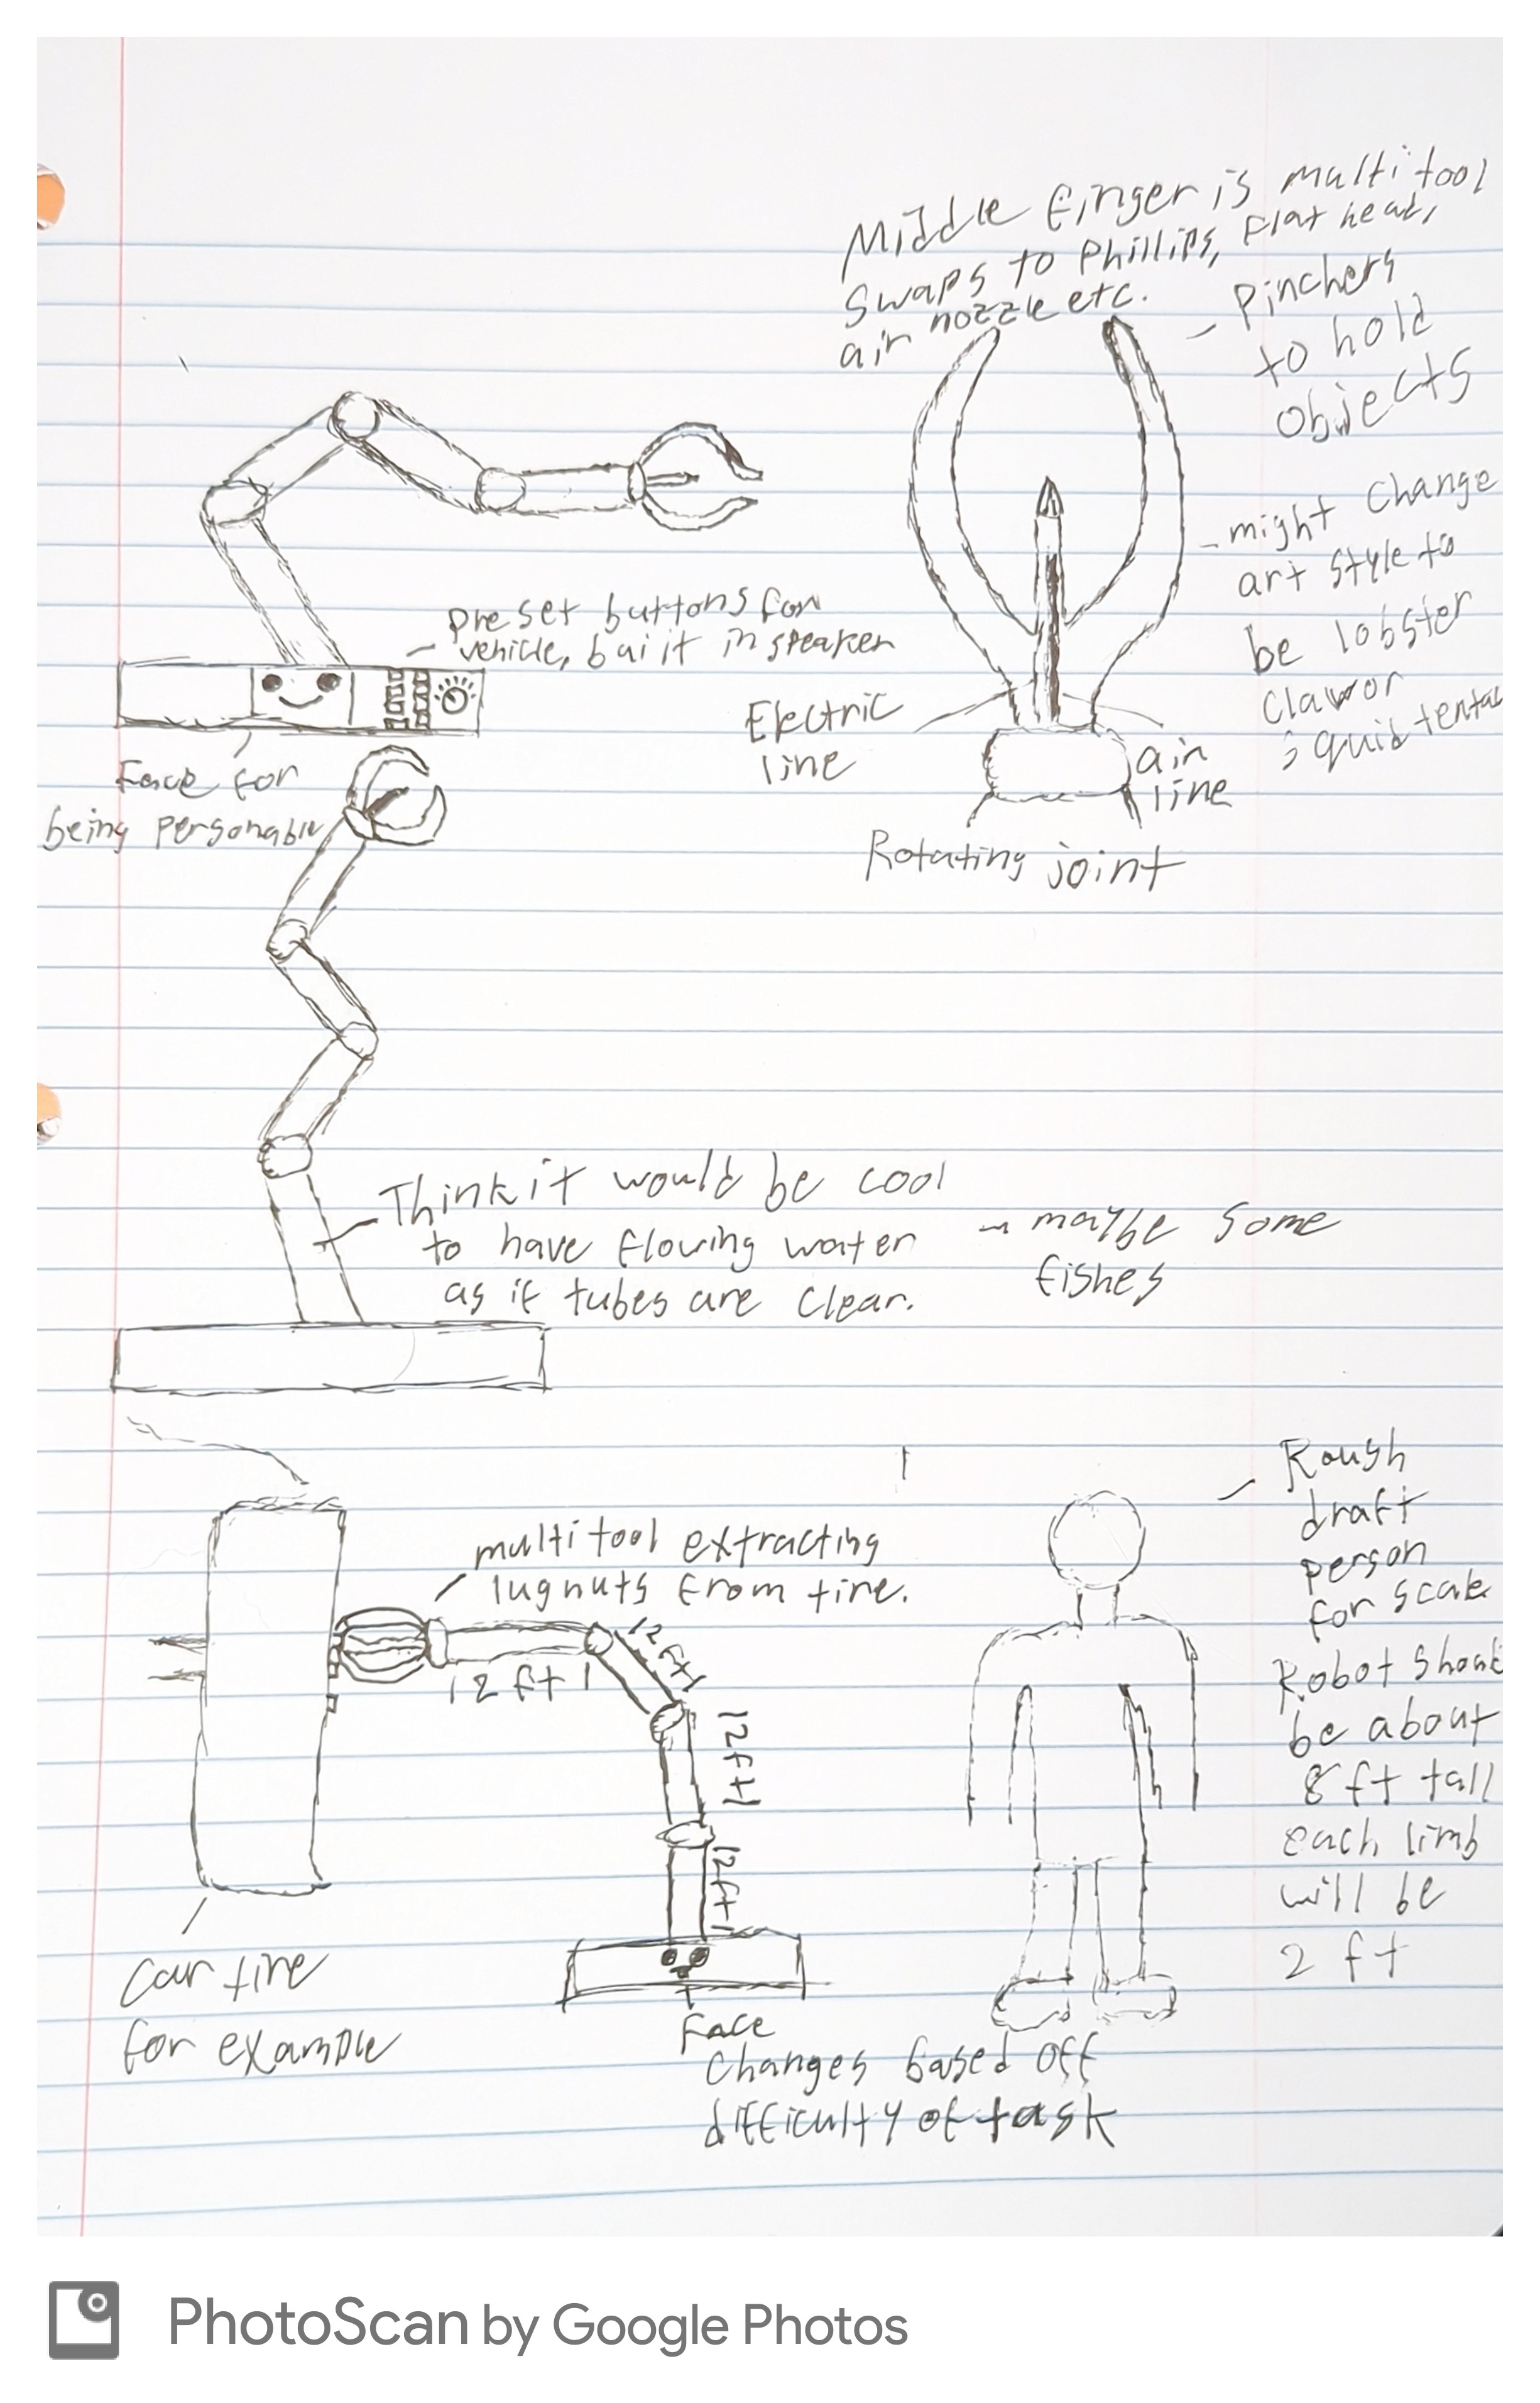 Middle finger is multi tool
swaps to Phillips, Flat head,
air nozzle etc.
- Pinchers
to hold
objects
- might change
art style to
be lobster
claw or
squid tentac
Preset buttons for
vehicle, built in speaker
Electric
line
air
line
Rotating joint
Face for
being personable
Think it would be cool
to have flowing water
as if tubes are clear.
- maybe some
fishes
multi tool extracting
lugnuts from tire.
|2 ft|
|2 ft|
|2 ft|
|2 ft|
Car tire
for example
Face
Changes based off
difficulty of task
- Rough
draft
person
for scale
Robot should
be about
8 ft tall
each limb
will be
2 ft
PhotoScan by Google Photos